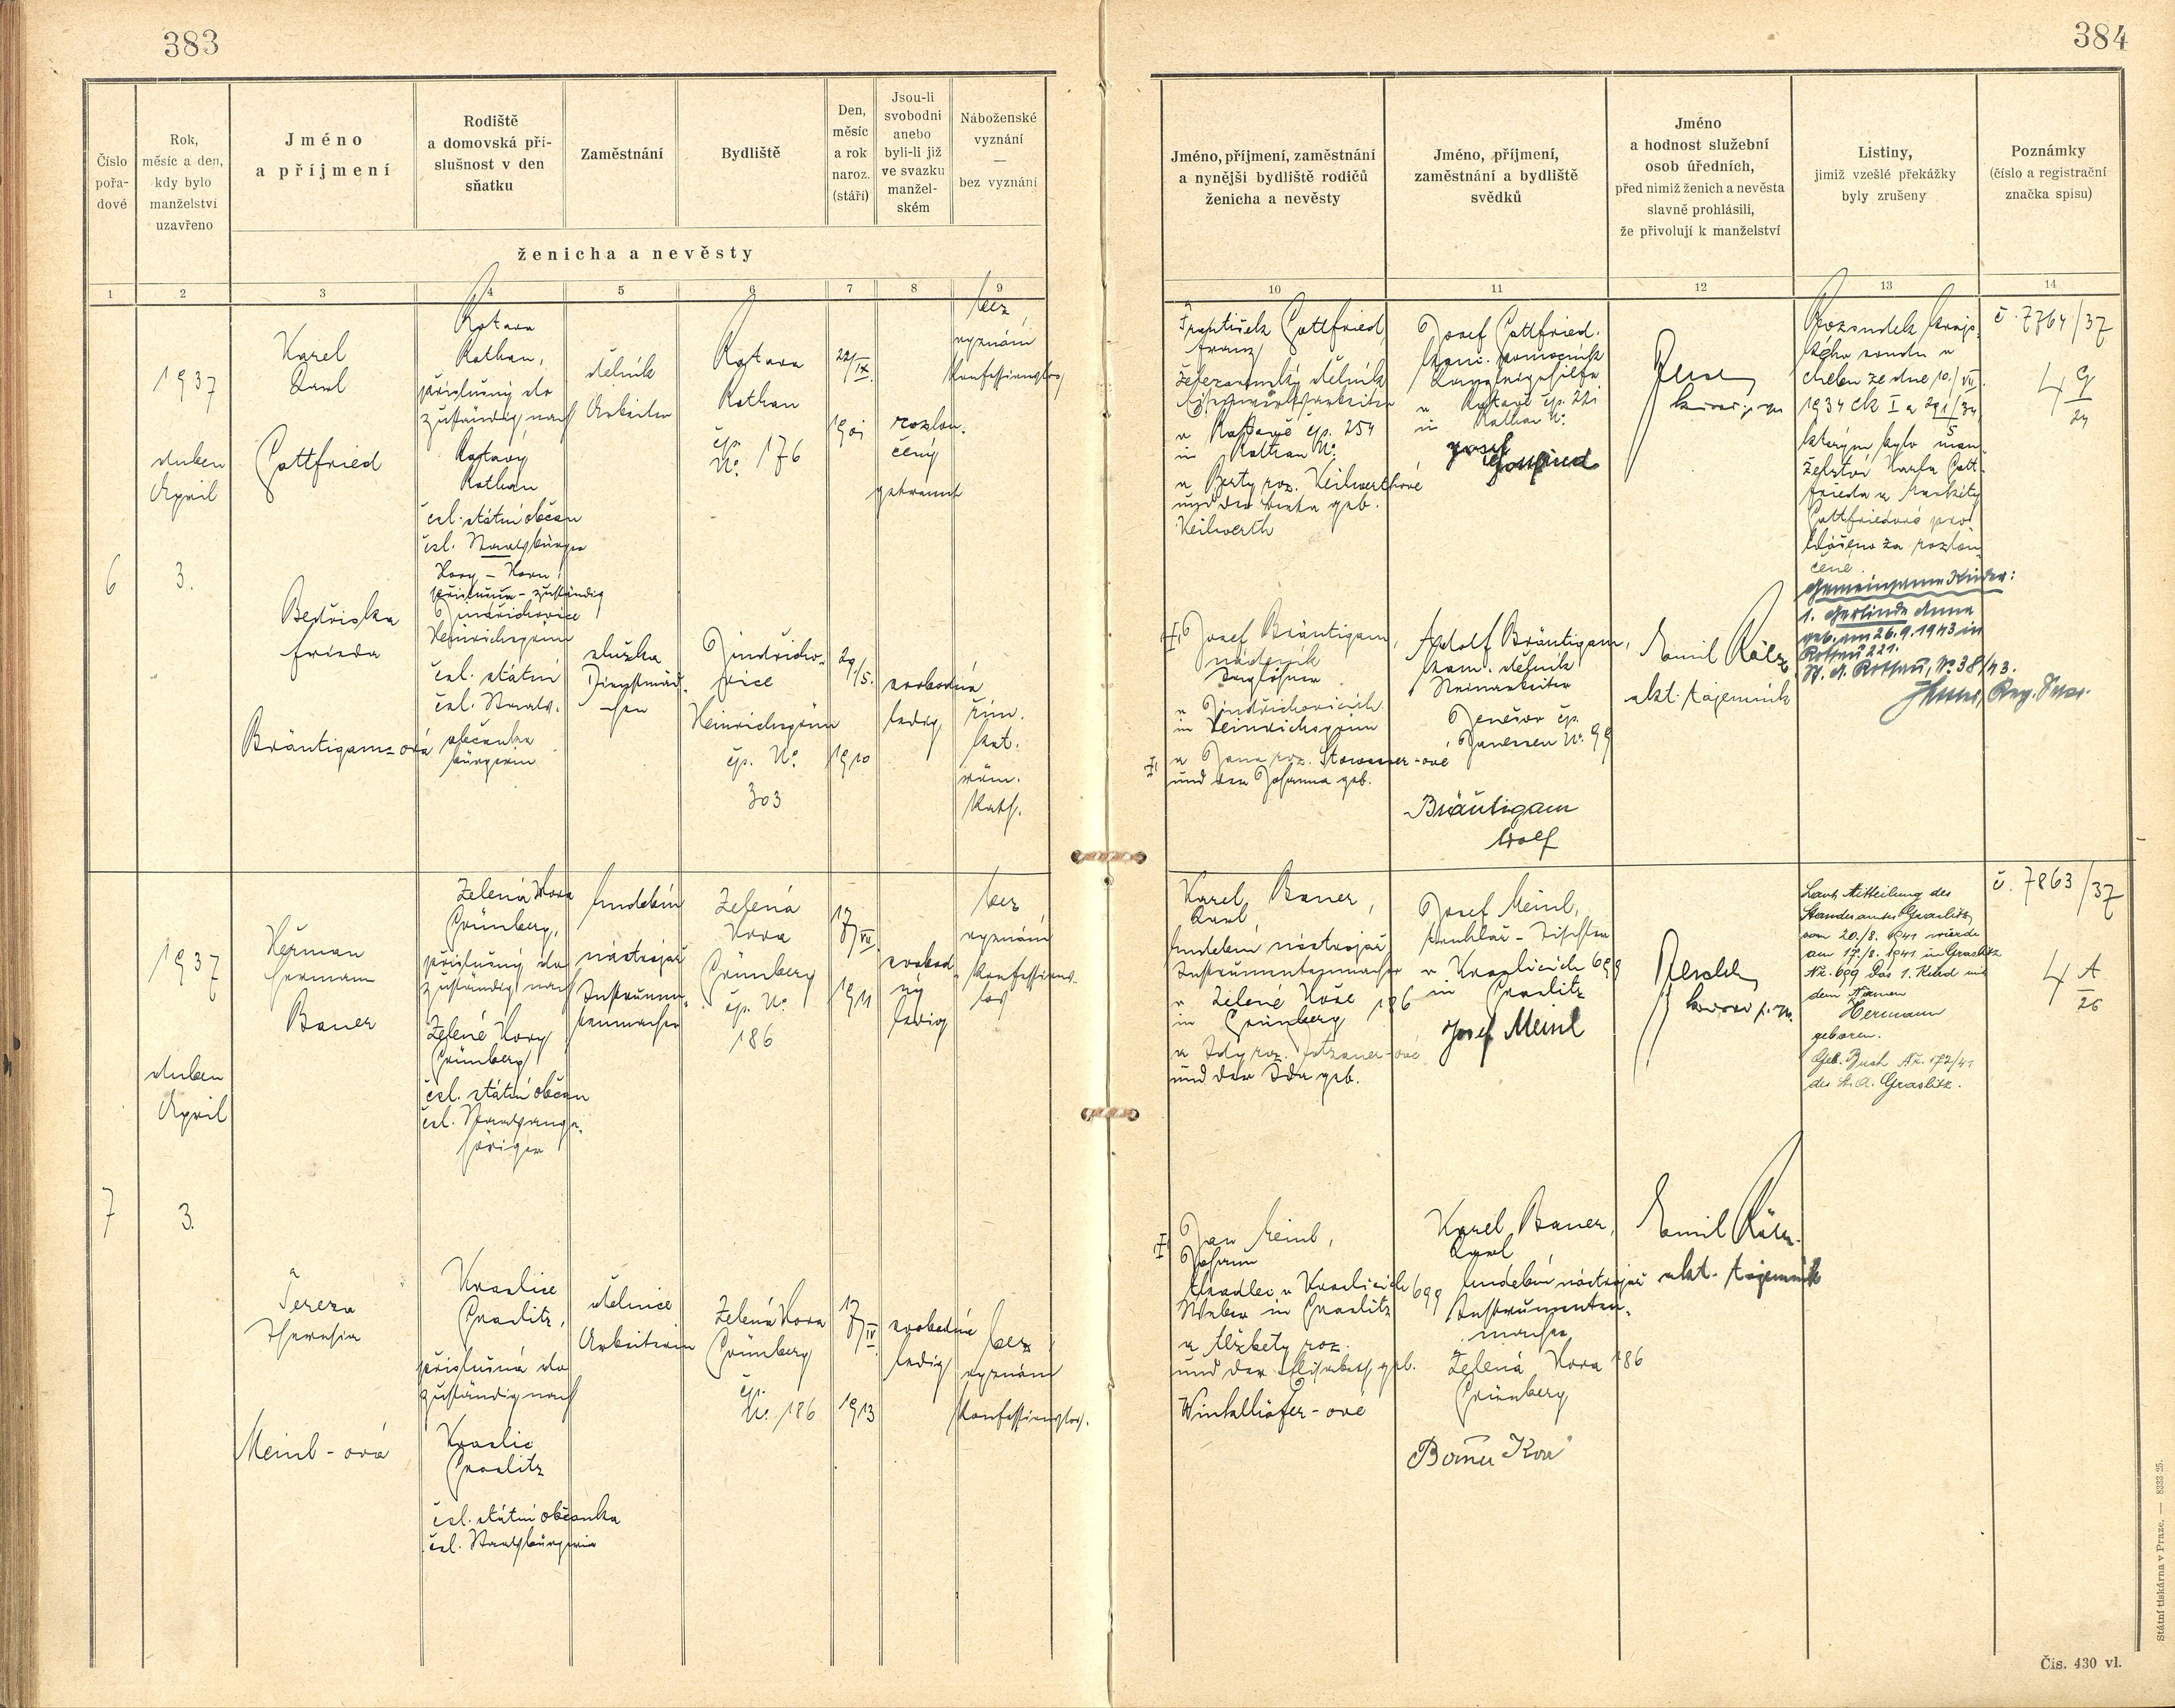 383
384
Číslo
pořa-
dové
Rok,
měsíc a den,
kdy bylo
manželství
uzavřeno
Jméno
a příjmení
Rodiště
a domovská pří-
slušnost v den
sňatku
Zaměstnání
Bydliště
Den,
měsíc
a rok
naroz.
(stáří)
Jsou-li
svobodni
anebo
byli-li již
ve svazku
manžel-
ském
Náboženské
vyznání
—
bez vyznání
ženicha a nevěsty
Jméno, příjmení, zaměstnání
a nynější bydliště rodičů
ženicha a nevěsty
Jméno, příjmení,
zaměstnání a bydliště
svědků
Jméno
a hodnost služební
osob úředních,
před nimiž ženich a nevěsta
slavně prohlásili,
že přivolují k manželství
Listiny,
jimiž vzešlé překážky
byly zrušeny
Poznámky
(číslo a registrační
značka spisu)
1 2 3 4 5 6 7 8 9
10 11 12 13 14
6
1937
duben
April
3.
Karel
Karl
Gottfried
Rotava
Rothau,
příslušný do
zuständig nach
Rotavy
Rothau
čsl. státní občan
čsl. Staatsbürger
dělník
Arbeiter
Rotava
Rothau
čp.
No. 176
22/IX.
1901
rozlou-
čený
getrennt
bez
vyznání
konfessionslos
Bedřiška
Frieda
Bräutigam=ová
Hory - Horn
příslušna - zuständig
Jindřichovice
Heinrichsgrün
čsl. státní
čsl. Staats-
občanka
bürgerin
služka
Dienstmäd-
chen
Jindřicho-
vice
Heinrichsgrün
čp. No.
303
29/5.
1910
svobodná
ledig
řím.
kat.
röm.
kath.
František Gottfried
Franz
železárenský dělník
Eisenwerksarbeiter
v Rotavě čp. 254
in Rothau No.
a Berty roz. Keilwerthové
und der Berta geb.
Keilwerth
Josef Gottfried.
kanc. pomocník
Kanzleigehilfe
v Rotavě čp. 221
in Rothau No.
Josef
Gottfried
Rozsudek kraj-
ského soudu v
Chebu ze dne 10./VII.
1934 Ck I a 291/34,
5
kterým bylo man-
želství Karla Gott-
frieda a Markéty
Gottfriedové pro-
hlášeno za rozlou-
čené.
Gemeinsame Kinder:
1. Gerlinde Anna
geb. am 26.9.1943 in
Rothau 221.
St. A. Rothau, No. 38/43.
č. 7764/37
4 G
24
Josef Bräutigam,
nádeník
Taglöhner
v Jindřichovicích
in Heinrichsgrün
a Jana roz. Stowasser-ové
und der Johanna geb.
Adolf Bräutigam,
kam. dělník
Steinarbeiter
Jenešov čp.
Janessen No. 99
Bräutigam
Adolf
Emil Kölz
akt. tajemník
7
1937
duben
April
3.
Heřman
Hermann
Bauer
Zelená Hora
Grünberg,
příslušný do
zuständig nach
Zelené Hory
Grünberg
čsl. státní občan
čsl. Staatsange-
höriger
hudební
nástrojař
Instrumen-
tenmacher
Zelená
Hora
Grünberg
čp. No.
186
17/VII.
1911
svobod-
ný
ledig
bez
vyznání
konfessions-
los
Tereza
Theresia
Meinl-ová
Kraslice
Graslitz,
příslušná do
zuständig nach
Kraslic
Graslitz
čsl. státní občanka
čsl. Staatsbürgerin
dělnice
Arbeiterin
Zelená Hora
Grünberg
čp.
No. 186
17/IV.
1913
svobodná
ledig
bez
vyznání
konfessionslos.
Karel Bauer,
Karl
hudební nástrojař
Instrumentenmacher
v Zelené Hoře 186
in Grünberg
a Idy roz.
und der Ida geb.
Josef Meinl,
truhlář - Tischler
v Kraslicích 699
in Graslitz
Josef Meinl
Laut Mitteilung des
Standesamtes Graslitz
vom 20./8. 1941 wurde
am 17./8. 1941 in Graslitz
Nr. 699 das 1. Kind mit
dem Namen
Hermann
geboren.
Geb. Buch Nr. 172/41
des St. A. Graslitz.
č. 7863/37
4 A
26
Jan Meinl,
Johann
tkadlec v Kraslicích 699
Weber in Graslitz
a Alžbety roz.
und der Elisabeth geb.
Winkelhöfer-ové
Karel Bauer,
Karl
hudební nástrojař
Instrumenten-
macher
Zelená Hora 186
Grünberg
Emil Kölz
akt. tajemník
Státní tiskárna v Praze. — 8333-25.
Čís. 430 vl.